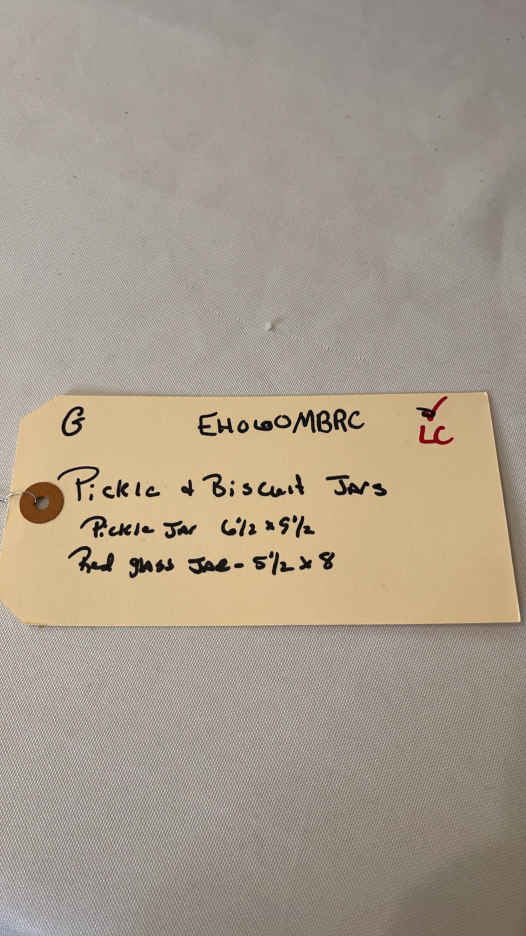 G EH060MBRC ✓
LC
Pickle & Biscuit Jars
Pickle Jar 6 1/2 x 9 1/2
Red glass Jar - 5 1/2 x 8